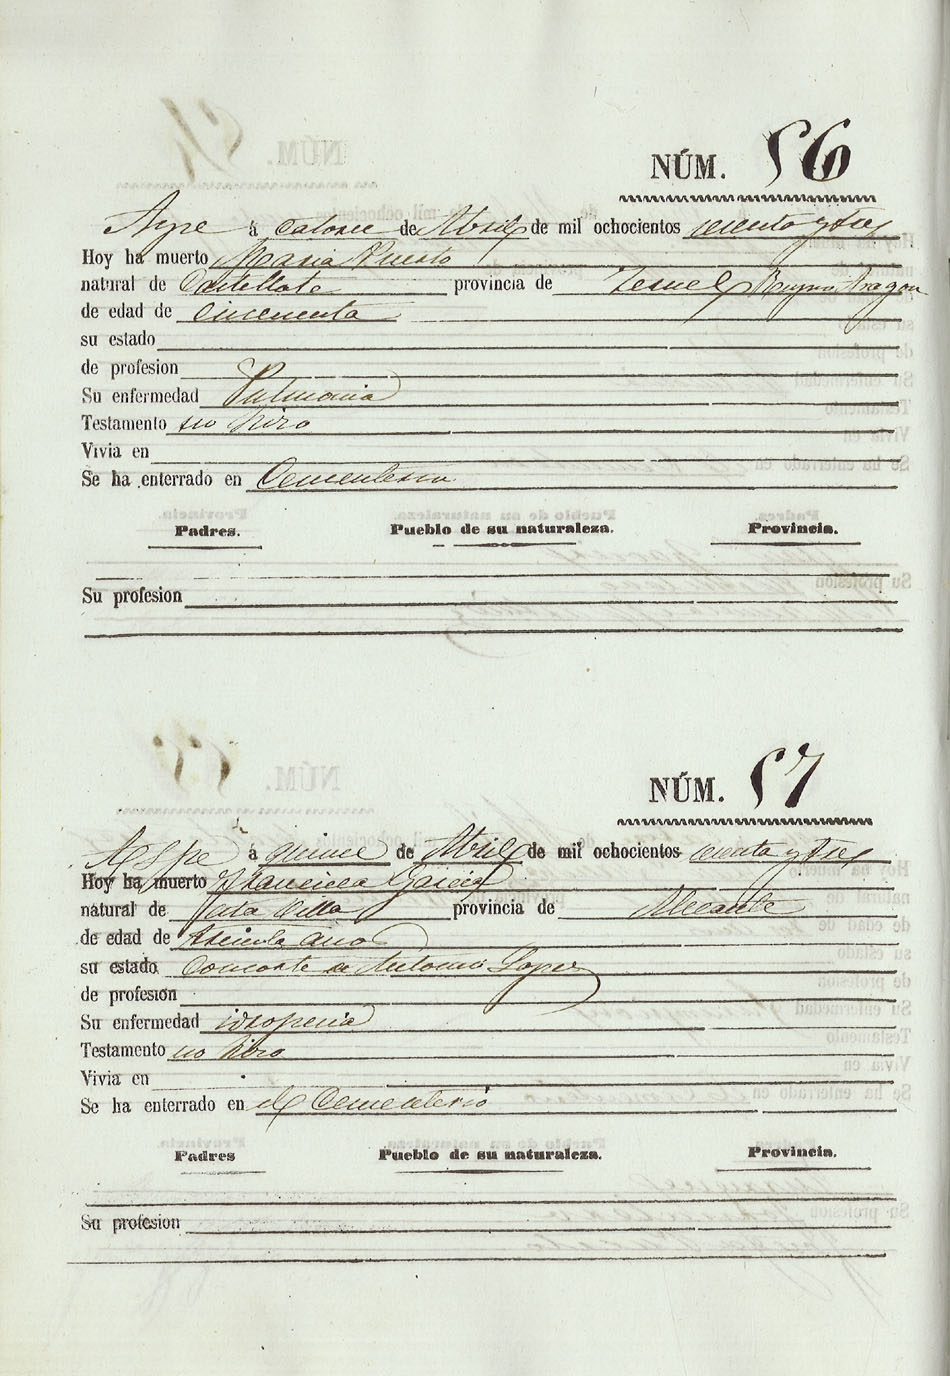 NÚM. 56
Aspe á catorce de Abril de mil ochocientos sesenta y tres
Hoy ha muerto Maria Puerto
natural de Castellote provincia de Teruel Reyno Aragon
de edad de cincuenta
su estado
de profesion
Su enfermedad Pulmonia
Testamento no hizo
Vivia en
Se ha enterrado en Cementerio
Padres. Pueblo de su naturaleza. Provincia.
Su profesion
NÚM. 57
Aspe á quince de Abril de mil ochocientos sesenta y tres
Hoy ha muerto Francisca Garcia
natural de esta Villa provincia de Alicante
de edad de treinta años
su estado Consorte de Antonio Lopez
de profesion
Su enfermedad idropecia
Testamento no hizo
Vivia en
Se ha enterrado en el Cementerio
Padres Pueblo de su naturaleza. Provincia.
Su profesion